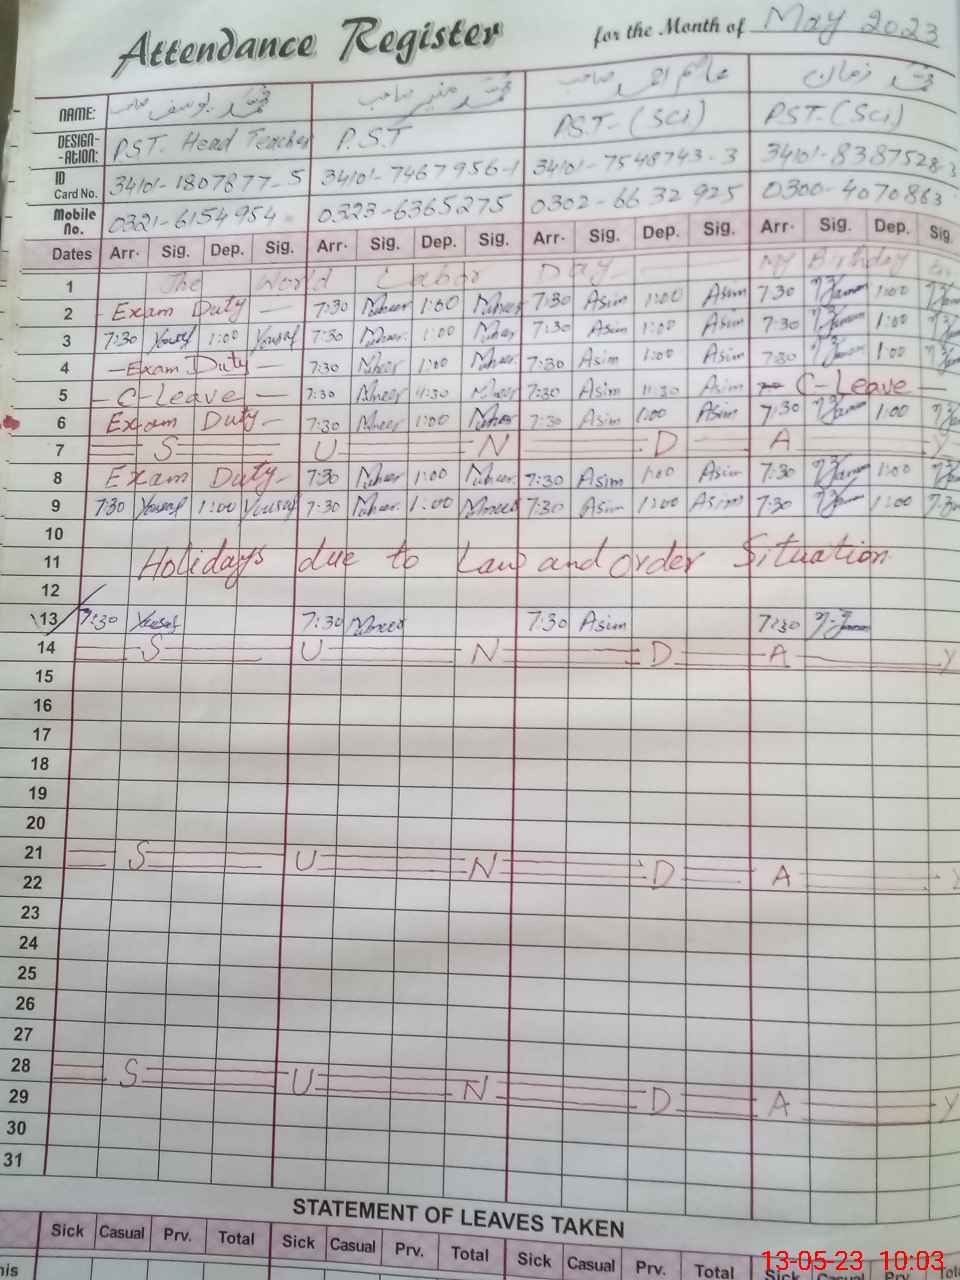 Attendance Register for the Month of May 2023
NAME: محمد یوسف صاحب محمد منیر صاحب عاصم صاحب محمد زمان
DESIGN-ATION: P.S.T. Head Teacher P.S.T P.S.T-(Sci) P.S.T.(Sci)
ID Card No. 34101-1807877-5 34101-7467956-1 34101-7548743-3 34101-8387528-3
Mobile No. 0321-6154954 0323-6365275 0302-6632925 0300-4070863
Dates Arr. Sig. Dep. Sig. Arr. Sig. Dep. Sig. Arr. Sig. Dep. Sig. Arr. Sig. Dep. Sig.
1 The World Labor Day My Birthday
2 Exam Duty 7:30 Muneer 1:00 Muneer 7:30 Asim 1:00 Asim 7:30 1:00
3 7:30 Yousaf 1:00 Yousaf 7:30 Muneer 1:00 Muneer 7:30 Asim 1:00 Asim 7:30 1:00
4 Exam Duty 7:30 Muneer 1:00 Muneer 7:30 Asim 1:00 Asim 7:30 1:00
5 C-Leave 7:30 Muneer 11:30 Muneer 7:30 Asim 11:30 Asim C-Leave
6 Exam Duty 7:30 Muneer 1:00 Muneer 7:30 Asim 1:00 Asim 7:30 1:00
7 S U N D A Y
8 Exam Duty 7:30 Muneer 1:00 Muneer 7:30 Asim 1:00 Asim 7:30 1:00
9 7:30 Yousaf 1:00 Yousaf 7:30 Muneer 1:00 Muneer 7:30 Asim 1:00 Asim 7:30 1:00
10
11 Holidays due to Law and order Situation
12
13 7:30 Yousaf 7:30 Muneer 7:30 Asim 7:30
14 S U N D A Y
15
16
17
18
19
20
21 S U N D A Y
22
23
24
25
26
27
28 S U N D A Y
29
30
31
STATEMENT OF LEAVES TAKEN
Sick Casual Prv. Total Sick Casual Prv. Total Sick Casual Prv. Total Sick Casual Prv.
13-05-23 10:03